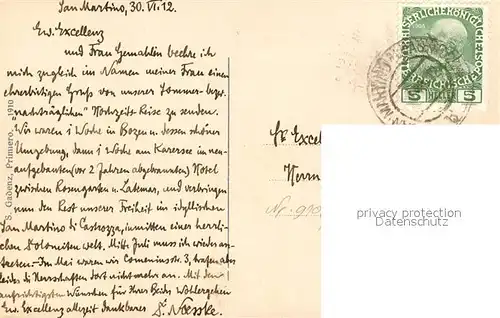 San Martino, 30. VI. 12.
Ew. Excellenz
und Frau Gemahlin beehre ich
mich zugleich im Namen meiner Frau einen
ehrerbietigen Gruss von unserer Sommer- bezw.
"nachträglichen" Hochzeits-Reise zu senden.
Wir waren 1 Woche in Bozen u. dessen schöner
Umgebung, dann 1 Woche am Karersee im neu-
aufgebauten (vor 2 Jahren abgebrannten) Hotel
zwischen Rosengarten u. Latemar, und verbringen
nun den Rest unserer Freiheit im idyllischen
San Martino di Castrozza, inmitten einer herrli-
chen Dolomitenwelt. Mitte Juli muss ich wieder an-
treten. Im Mai waren wir Comeniusstr. 3, trafen aber
leider die Herrschaften dort nicht mehr an. Mit den
aufrichtigsten Wünschen für Ihrer Beider Wohlergehen
Ew. Excellenz allezeit dankbarer
S. Gadenz, Primiero. 1910
5
5
Sr Excell
Herrn
property protection
www.oldthing.de